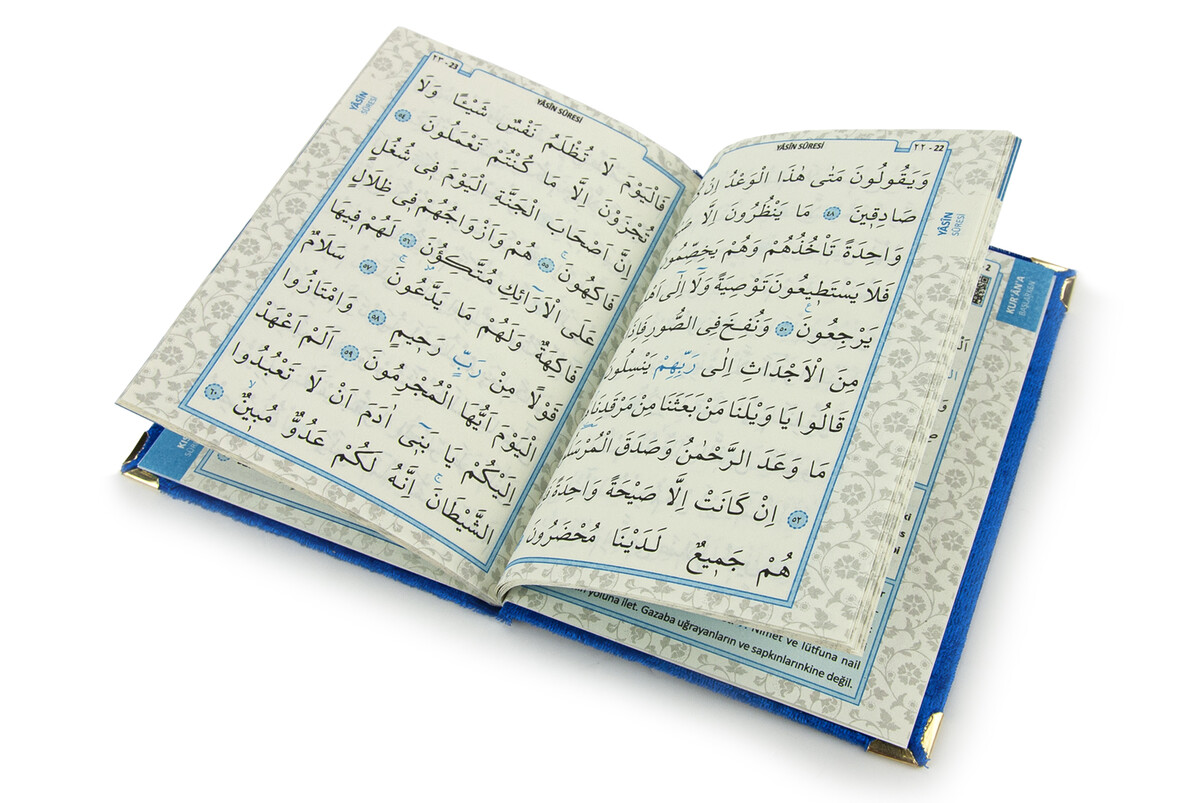 ٢٢ - 22
YÂSÎN SÛRESİ
YÂSÎN
SÛRESİ
وَيَقُولُونَ مَتٰى هٰذَا الْوَعْدُ اِنْ
صَادِقٖينَ ٤٨ مَا يَنْظُرُونَ اِلَّا
وَاحِدَةً تَأْخُذُهُمْ وَهُمْ يَخِصِّمُونَ
فَلَا يَسْتَطٖيعُونَ تَوْصِيَةً وَلَٓا اِلٰٓى
يَرْجِعُونَ ٥٠ وَنُفِخَ فِى الصُّورِ فَاِذَا
مِنَ الْاَجْدَاثِ اِلٰى رَبِّهِمْ يَنْسِلُونَ
قَالُوا يَا وَيْلَنَا مَنْ بَعَثَنَا مِنْ مَرْقَدِنَا
مَا وَعَدَ الرَّحْمٰنُ وَصَدَقَ
٥٢ اِنْ كَانَتْ اِلَّا صَيْحَةً وَاحِدَةً
هُمْ جَمٖيعٌ لَدَيْنَا مُحْضَرُونَ
٢٣ - 23
YÂSÎN SÛRESİ
YÂSÎN
SÛRESİ
فَالْيَوْمَ لَا تُظْلَمُ نَفْسٌ شَيْئًا وَلَا
تُجْزَوْنَ اِلَّا مَا كُنْتُمْ تَعْمَلُونَ ٥٤
اِنَّ اَصْحَابَ الْجَنَّةِ الْيَوْمَ فٖى شُغُلٍ
فَاكِهُونَ ٥٥ هُمْ وَاَزْوَاجُهُمْ فٖى ظِلَالٍ
عَلَى الْاَرَٓائِكِ مُتَّكِؤُنَ ٥٦ لَهُمْ فٖيهَا
فَاكِهَةٌ وَلَهُمْ مَا يَدَّعُونَ ٥٧ سَلَامٌ
قَوْلًا مِنْ رَبٍّ رَحٖيمٍ ٥٨ وَامْتَازُوا
الْيَوْمَ اَيُّهَا الْمُجْرِمُونَ ٥٩ اَلَمْ اَعْهَدْ
اِلَيْكُمْ يَا بَنٖٓى اٰدَمَ اَنْ لَا تَعْبُدُوا
الشَّيْطَانَ اِنَّهُ لَكُمْ عَدُوٌّ مُبٖينٌ ٦٠
2
KUR'ÂN'A
BAŞLARKEN
yoluna ilet. Gazaba uğrayanların ve sapkınlarınkine değil.
Nimet ve lütfuna nail